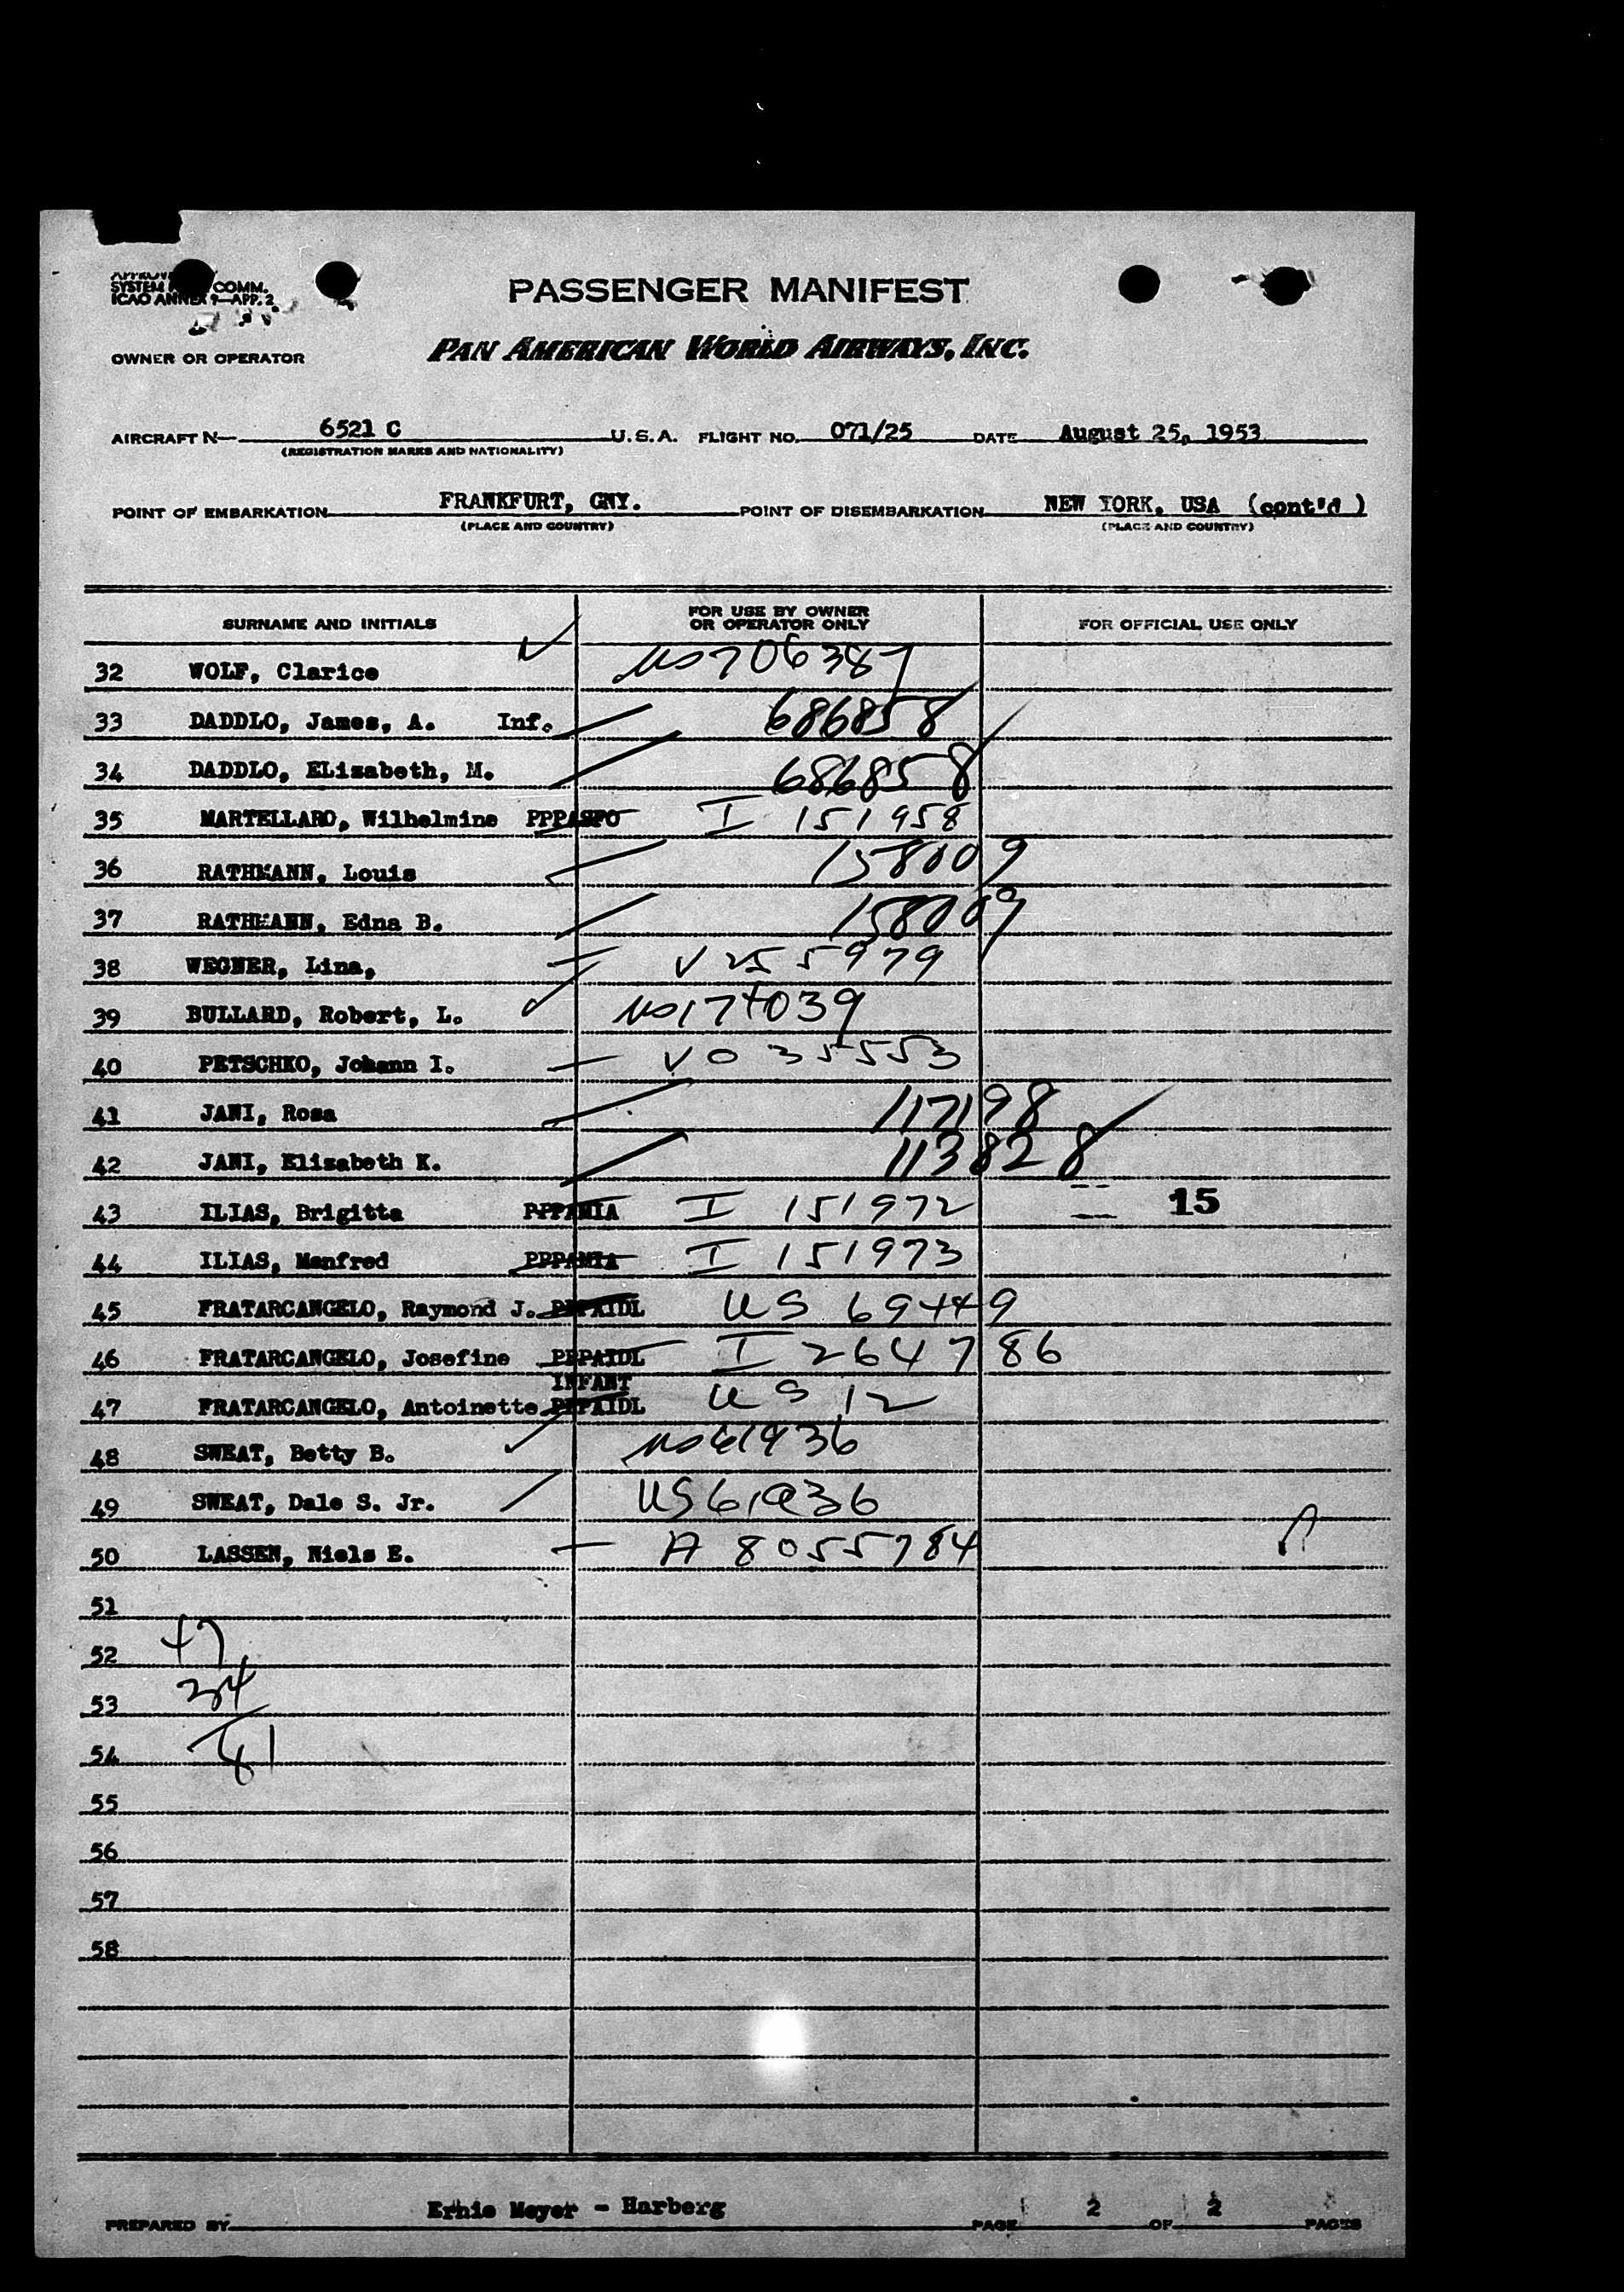 SYSTEM COMM.
ICAO ANNEX 9—APP. 2
PASSENGER MANIFEST
OWNER OR OPERATOR PAN AMERICAN WORLD AIRWAYS, INC.
AIRCRAFT N— 6521 C U.S.A. FLIGHT NO. 071/25 DATE August 25, 1953
(REGISTRATION MARKS AND NATIONALITY)
POINT OF EMBARKATION FRANKFURT, GNY. POINT OF DISEMBARKATION NEW YORK, USA (cont'd )
(PLACE AND COUNTRY) (PLACE AND COUNTRY)
SURNAME AND INITIALS FOR USE BY OWNER OR OPERATOR ONLY FOR OFFICIAL USE ONLY
32 WOLF, Clarice US706387
33 DADDLO, James, A. Inf. 686858
34 DADDLO, ELizabeth, M. 686858
35 MARTELLARO, Wilhelmine PPPASFO I 151958
36 RATHMANN, Louis 158009
37 RATHMANN, Edna B. 158009
38 WEGNER, Lina, V255979
39 BULLARD, Robert, L. US174039
40 PETSCHKO, Johann I. V035553
41 JANI, Rosa 117198
42 JANI, Elizabeth K. 113828
43 ILIAS, Brigitta PPPAMIA I 151972 15
44 ILIAS, Manfred PPPAMIA I 151973
45 FRATARCANGELO, Raymond J. PPPAIDL US 69449
46 FRATARCANGELO, Josefine PPPAIDL I 264786
INFANT
47 FRATARCANGELO, Antoinette PPPAIDL US 12
48 SWEAT, Betty B. US61936
49 SWEAT, Dale S. Jr. US61936
50 LASSEN, Niels E. A 8055784
51
52 47
53 34
54 81
55
56
57
58
PREPARED BY Ernie Meyer - Harberg PAGE 2 OF 2 PAGES